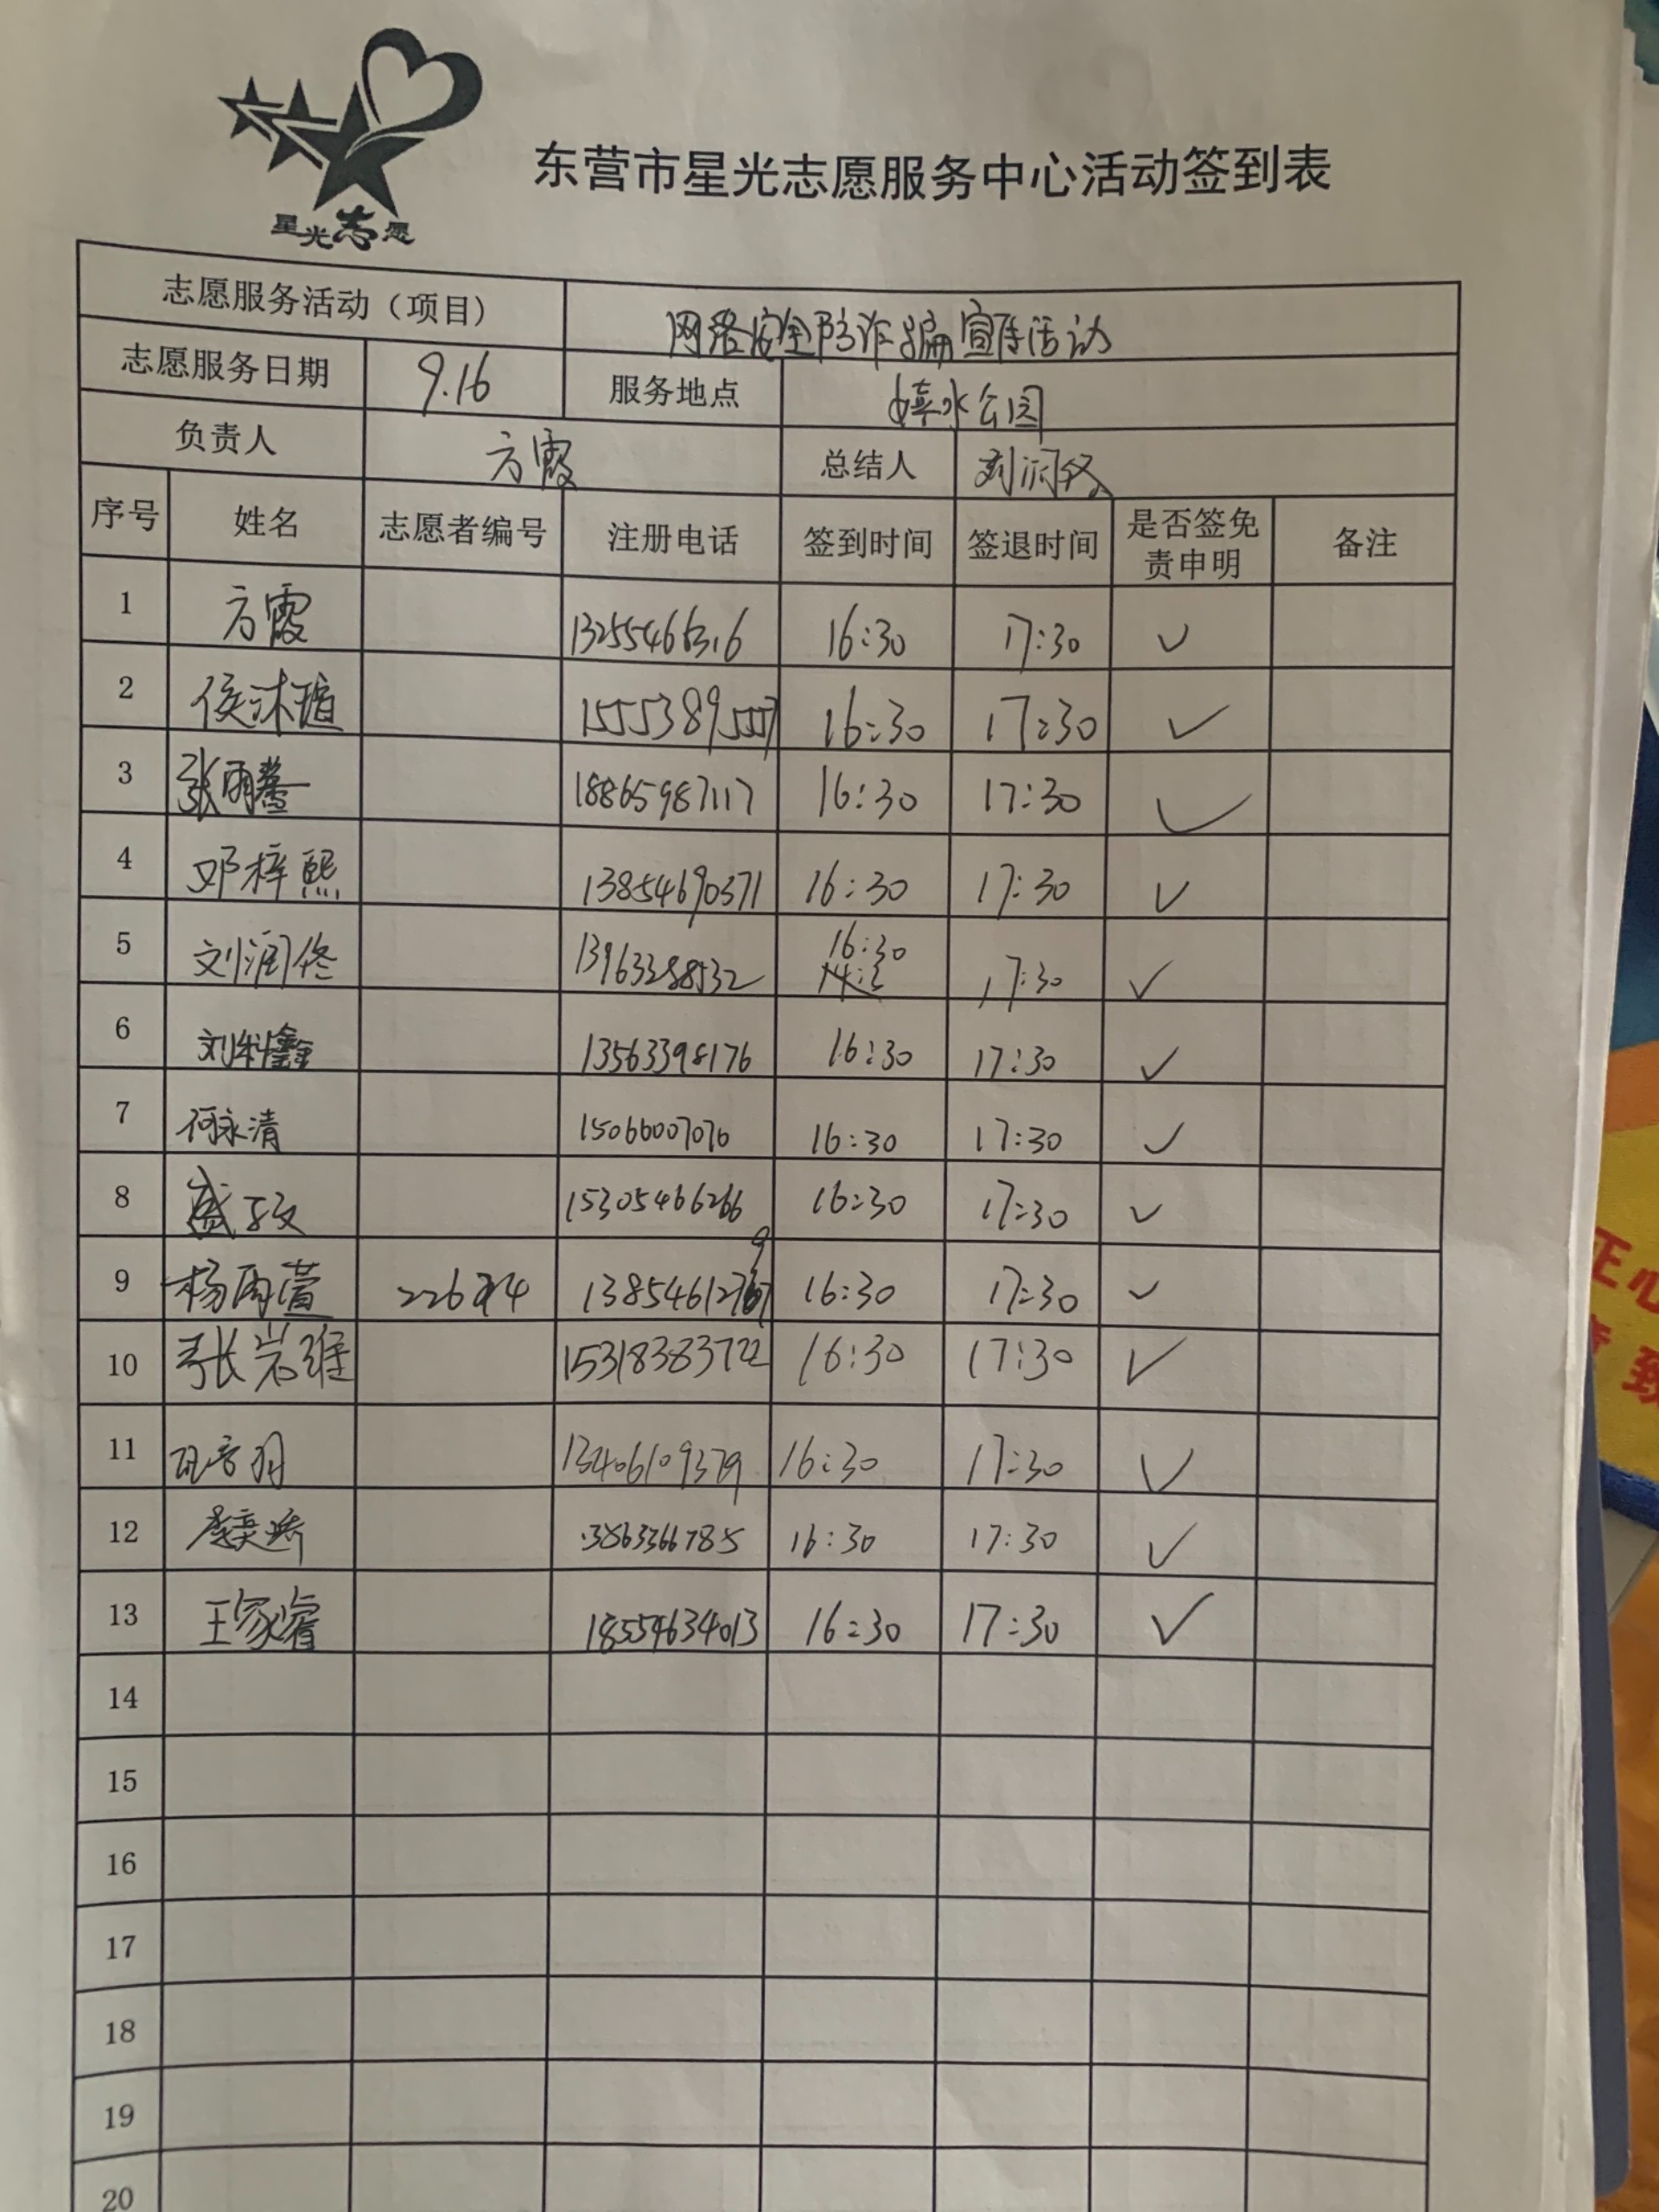 星光志愿
东营市星光志愿服务中心活动签到表
志愿服务活动（项目） 网络安全防诈骗宣传活动
志愿服务日期 9.16 服务地点 水公园
负责人 方霞 总结人 刘润
序号 姓名 志愿者编号 注册电话 签到时间 签退时间 是否签免责申明 备注
1 方霞 13255466316 16:30 17:30 ✓
2 侯沐瑄 15553895557 16:30 17:30 ✓
3 张雨 18865987117 16:30 17:30 ✓
4 邓梓熙 13854690371 16:30 17:30 ✓
5 刘润佟 13963288532 16:30 17:30 ✓
6 刘科鑫 13563398176 16:30 17:30 ✓
7 何永清 15066007076 16:30 17:30 ✓
8 盛 15305466266 16:30 17:30 ✓
9 杨雨萱 16:30 17:30 ✓
10 张岩维 15318383722 16:30 17:30 ✓
11 13406109379 16:30 17:30 ✓
12 16:30 17:30 ✓
13 王家睿 18554634013 16:30 17:30 ✓
14
15
16
17
18
19
20
正心
致